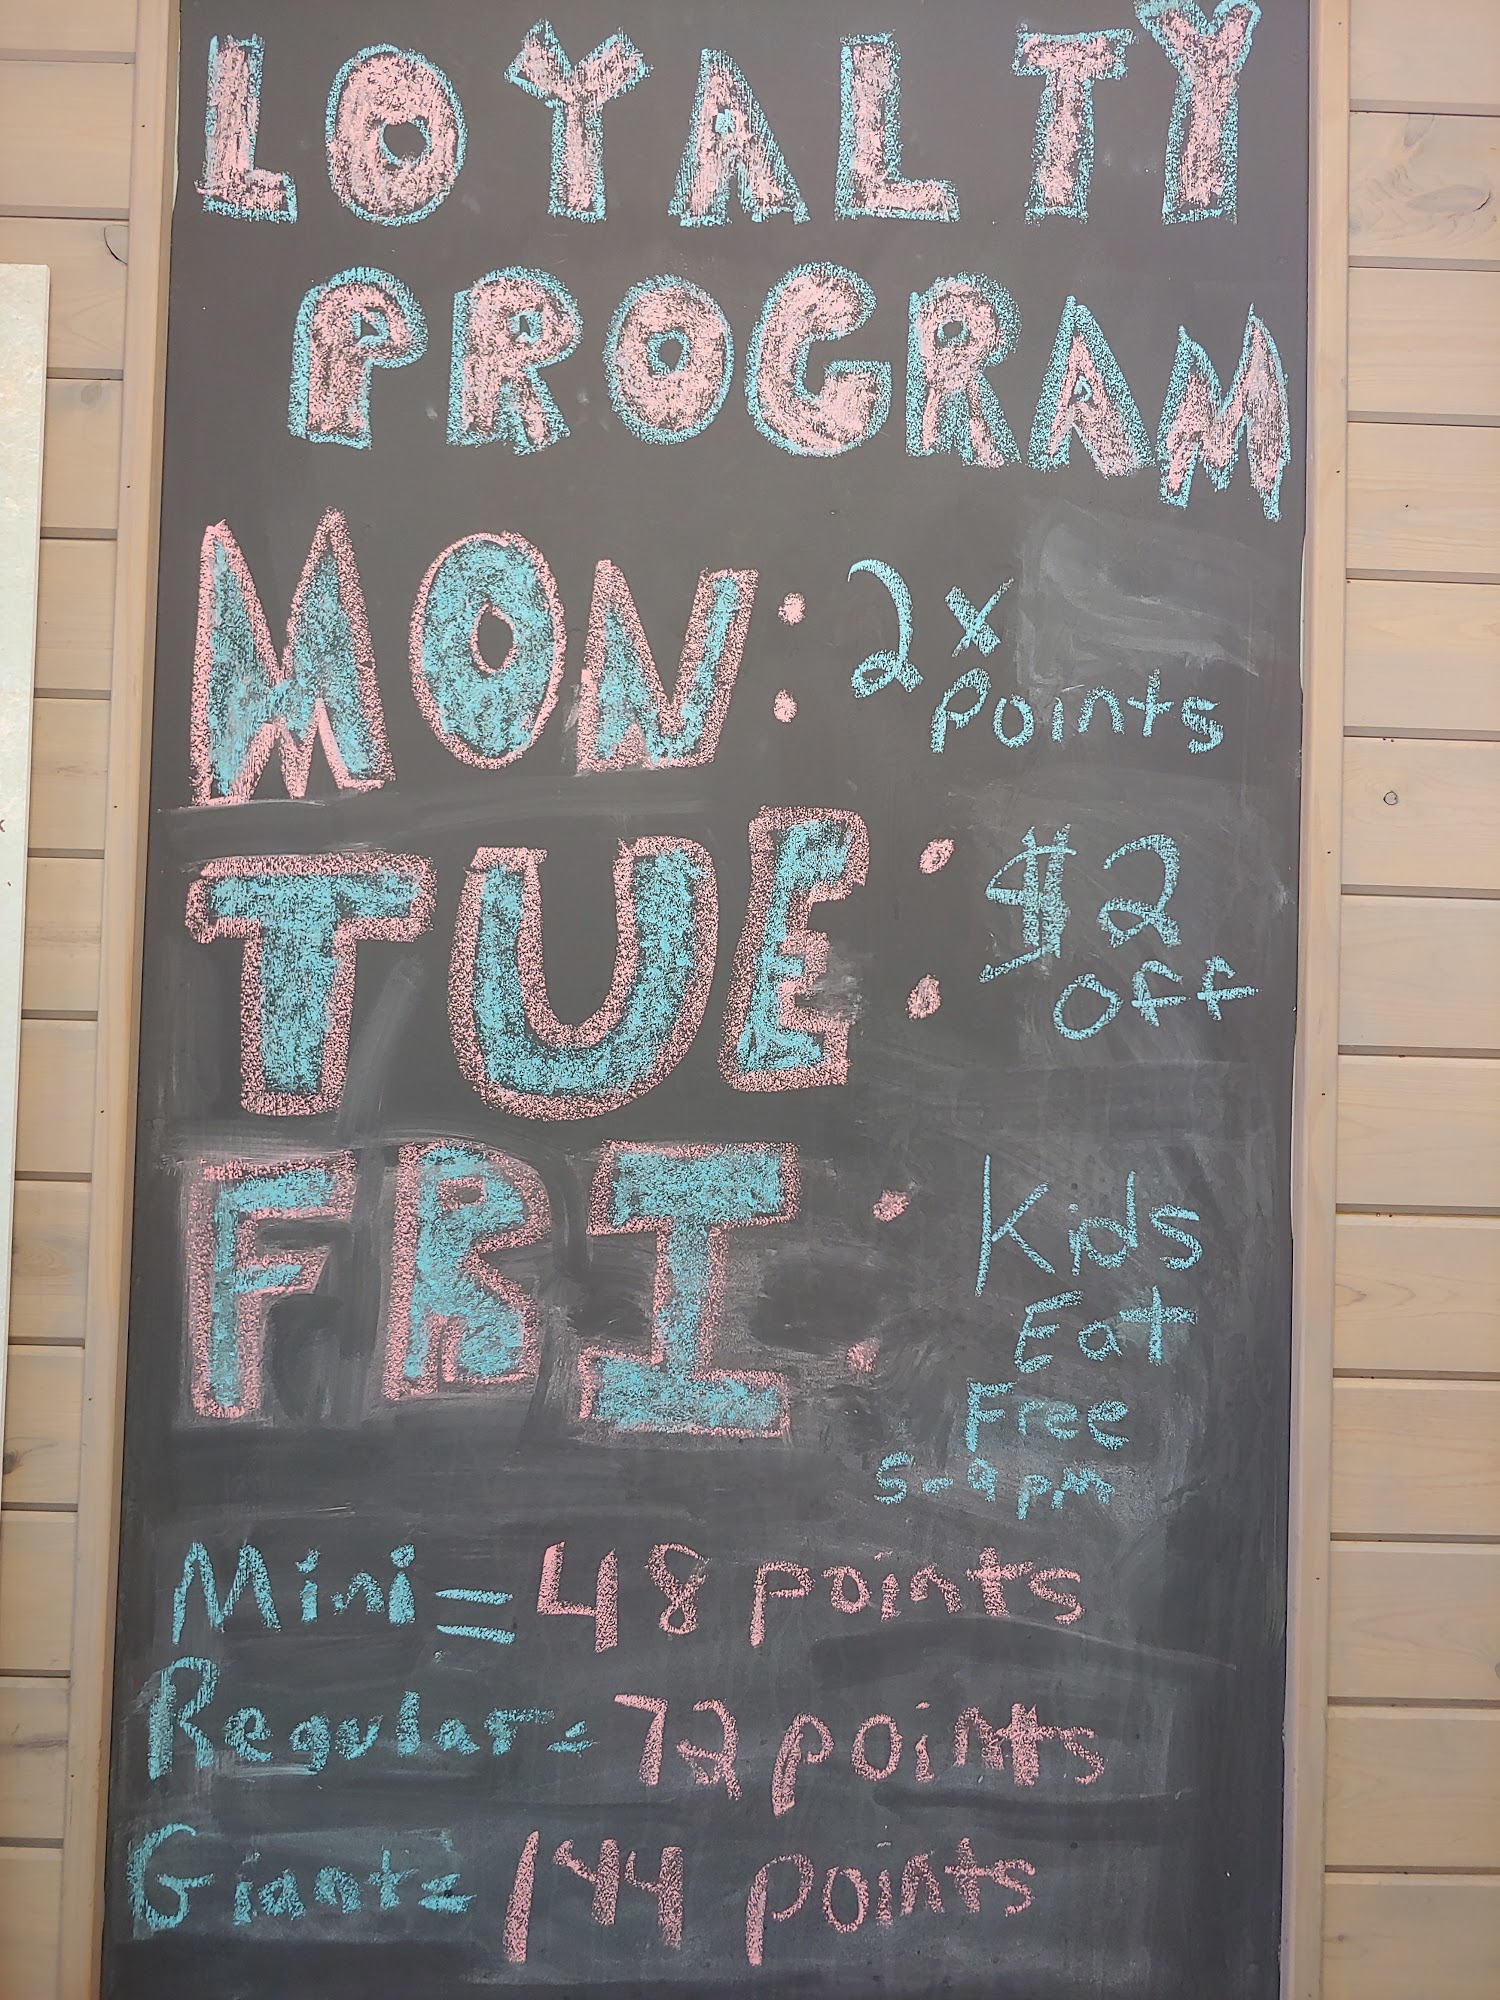 LOYALTY
PROGRAM
MON: 2x
points
TUE: $2
off
FRI: Kids
Eat
Free
5-9pm
Mini = 48 points
Regular = 72 points
Giant = 144 points